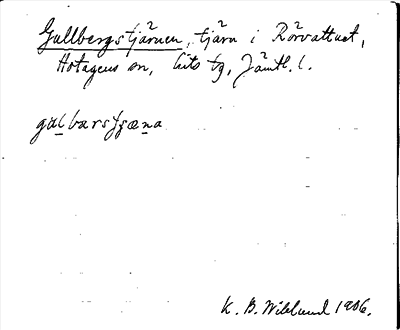 Gullbergstjärnen, tjärn i Rörvattnet,
Hotagens sn, Lits tg, Jämtl. l.
galbarstjæna
K. B. Wiklund 1906.